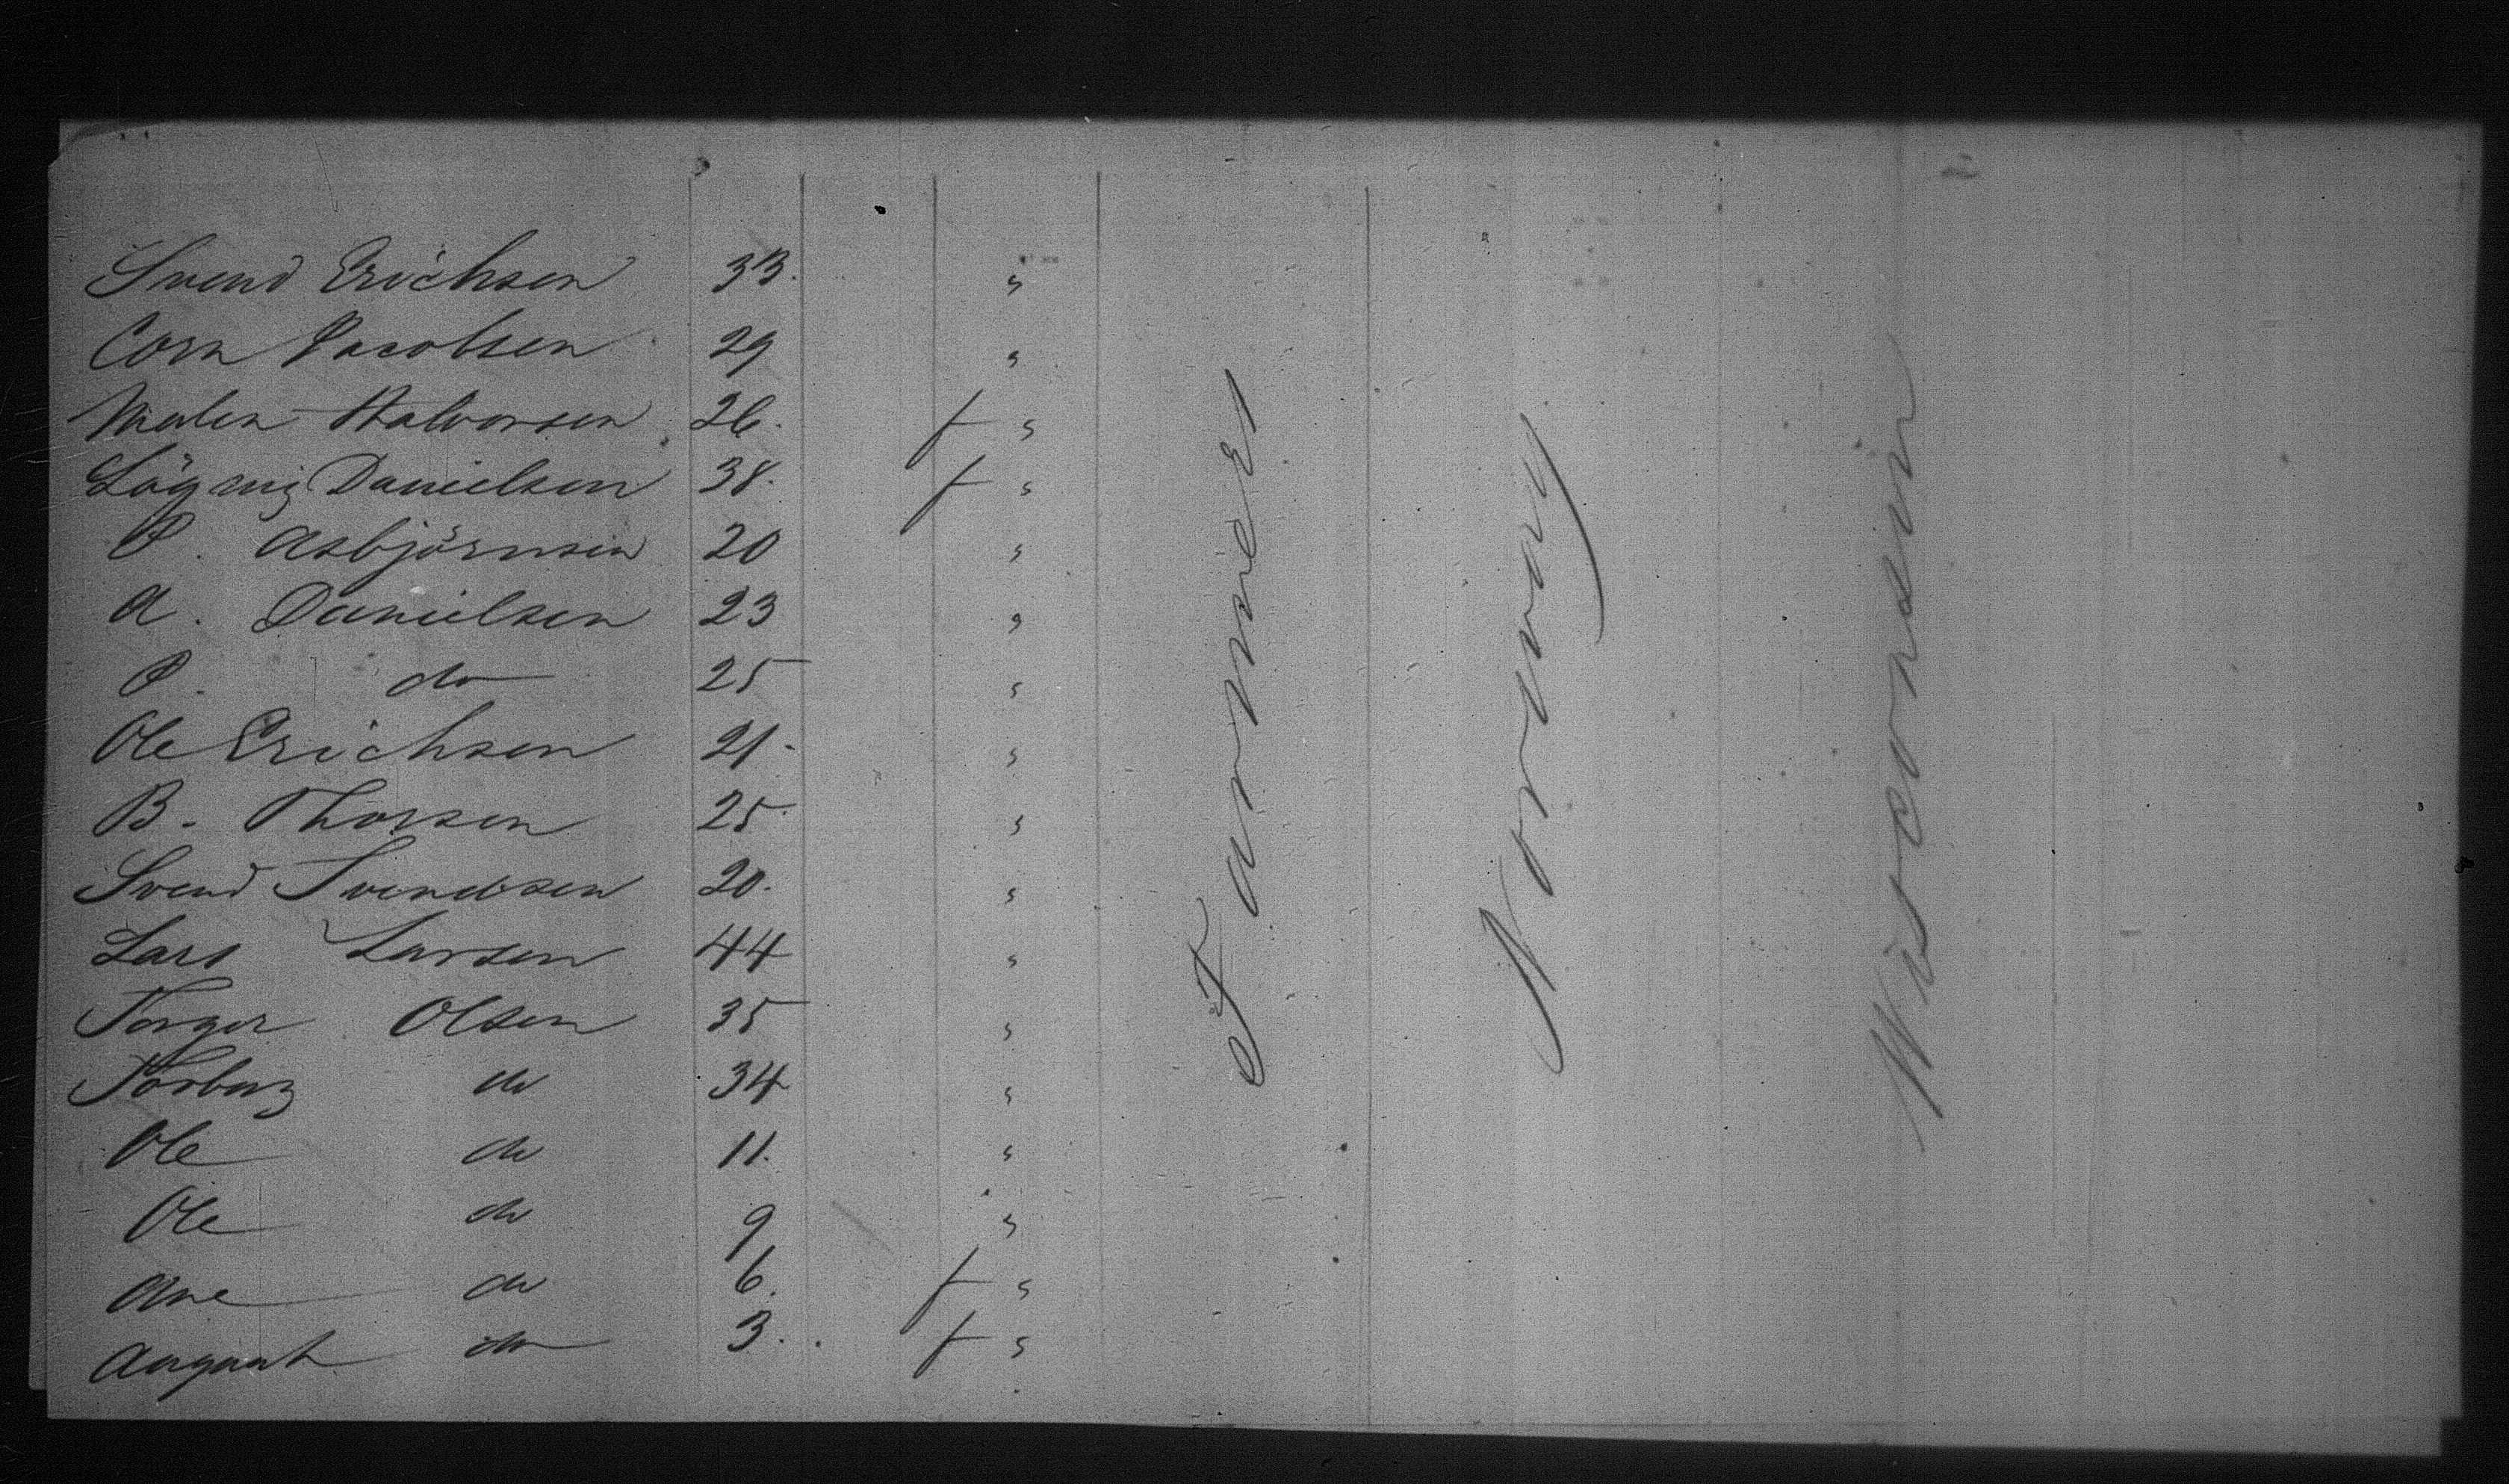 Svend Erichsen 33. "
Corn Jacobsen 29 "
Malen Halvorsen 26. f "
Danielsen 38. f "
P. Asbjörnsen 20 "
A. Danielsen 23 "
P. do 25 "
Ole Erichsen 21- "
B. Thorsen 25 "
Svend Svendsen 20. "
Lars Larsen 44 "
Torger Olsen 35 "
Torborg do 34 "
Ole do 11. "
Ole do 9 "
Ane do 6. f "
August do 3. f "
Farmer
Norway
Wisconsin